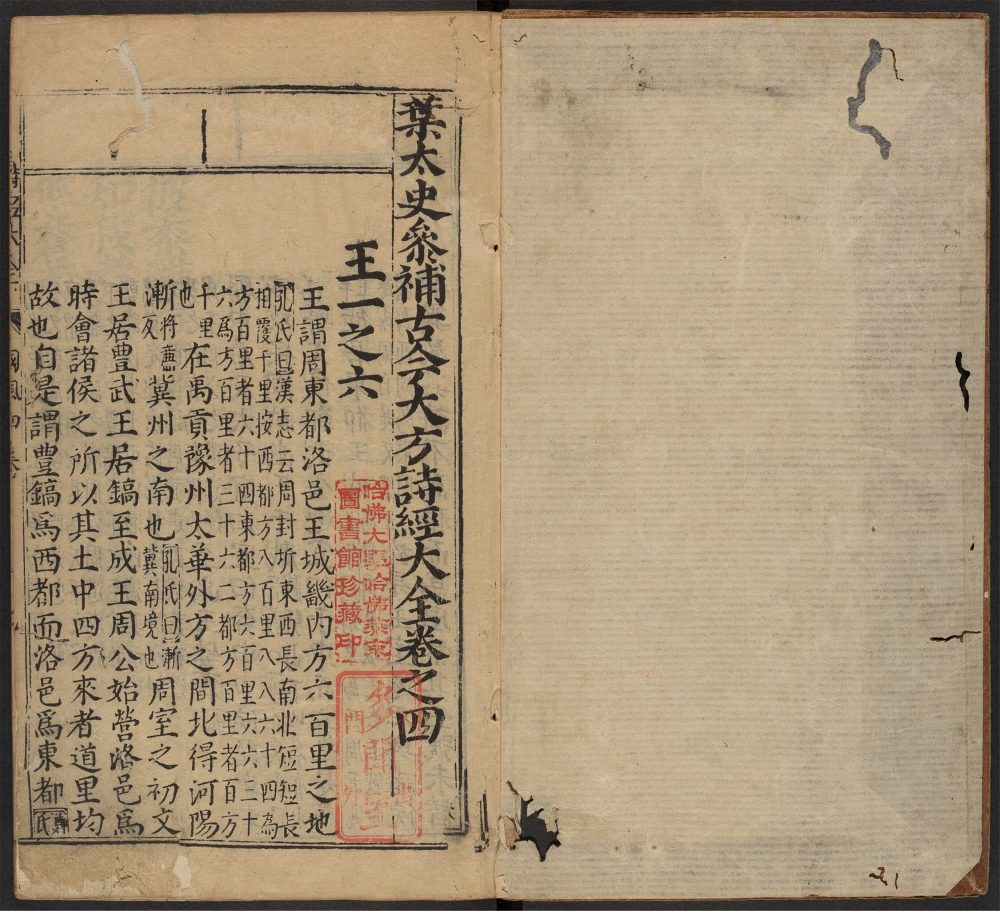 葉太史參補古今大方詩經大全卷之四
王一之六
王謂周東都洛邑王城畿内方六百里之地
孔氏曰漢志云周封圻東西長南北短短長
相覆千里按西都方八百里八八六十四為
方百里者六十四東都方六百里六六三十
六爲方百里者三十六二都方百里者百方
千里也
在禹貢豫州太華外方之間北得河陽
漸將廉反
冀州之南也
孔氏曰漸冀南境也
周室之初文
王居豊武王居鎬至成王周公始營洛邑爲
時會諸侯之所以其土中四方來者道里均
故也自是謂豐鎬爲西都而洛邑爲東都
國風四卷
哈佛大學哈佛燕京
圖書館珍藏印